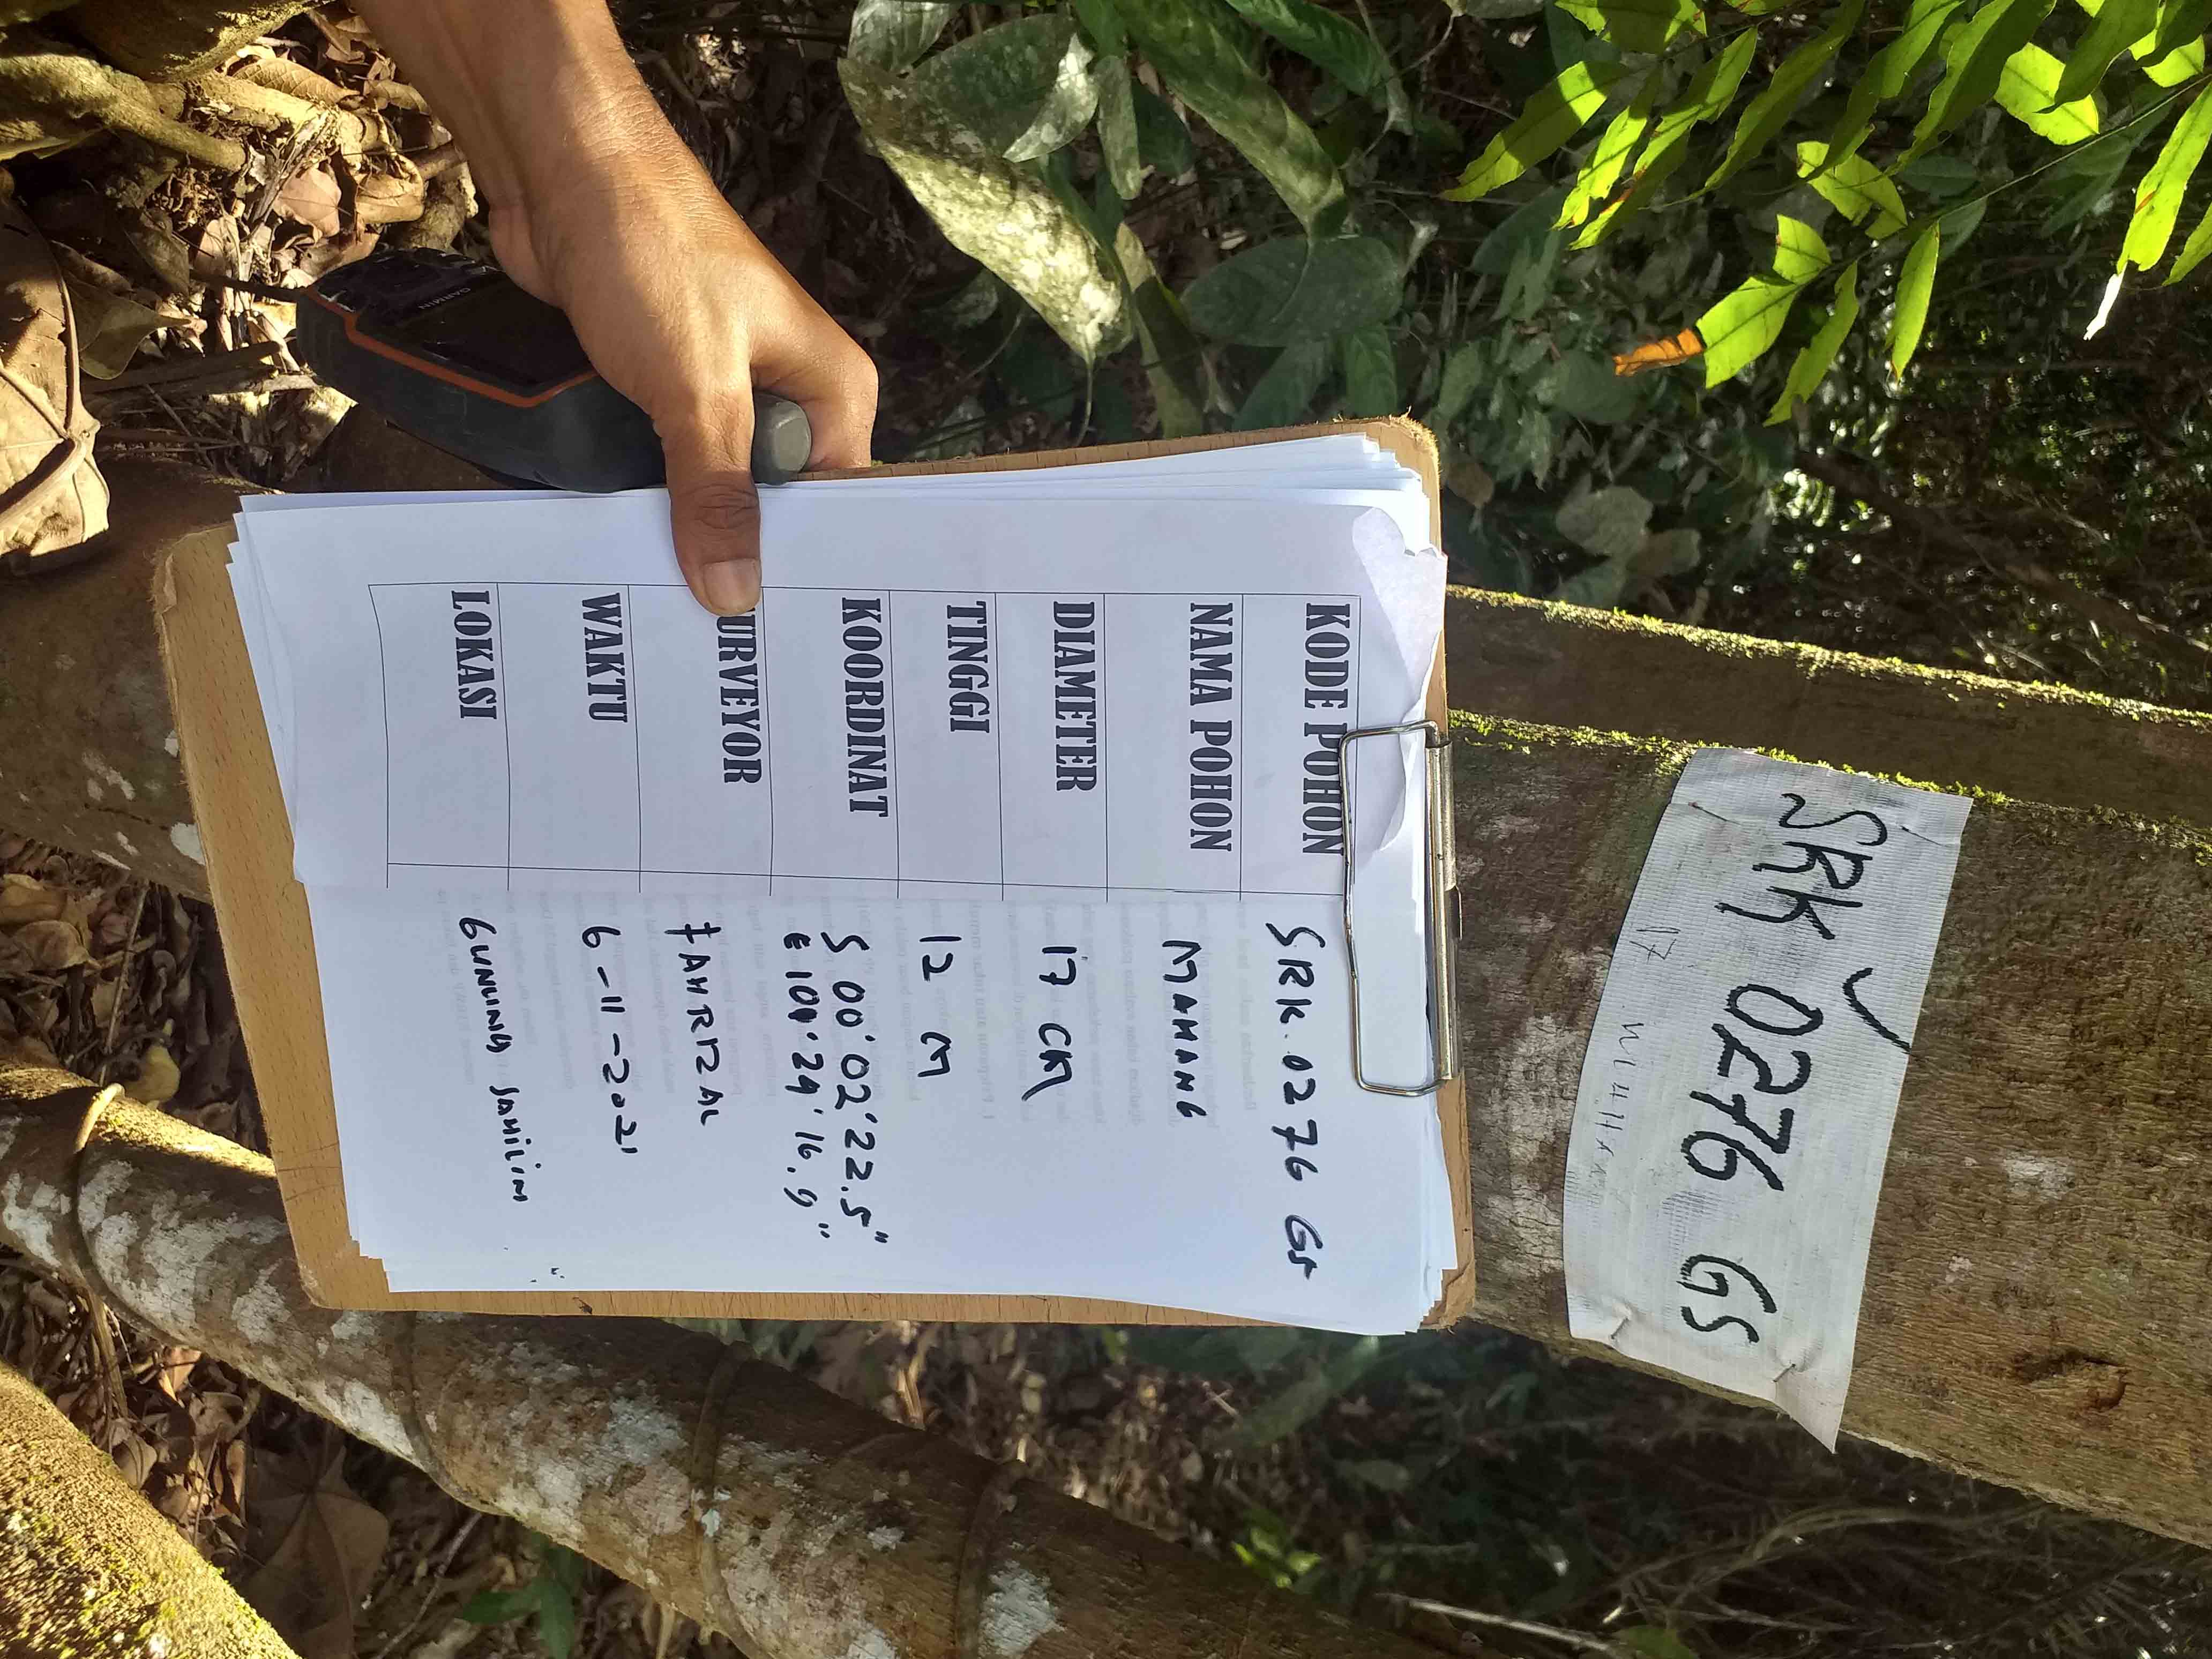 SRK 0276 GS
17
KODE POHON SRK 0276 GS
NAMA POHON MAHANG
DIAMETER 17 CM
TINGGI 12 M
KOORDINAT S 00°02'22.5"
E 101°29'16.9"
URVEYOR FAHRIZAL
WAKTU 6-11-2021
LOKASI GUNUNG SAHILIM
GARMIN